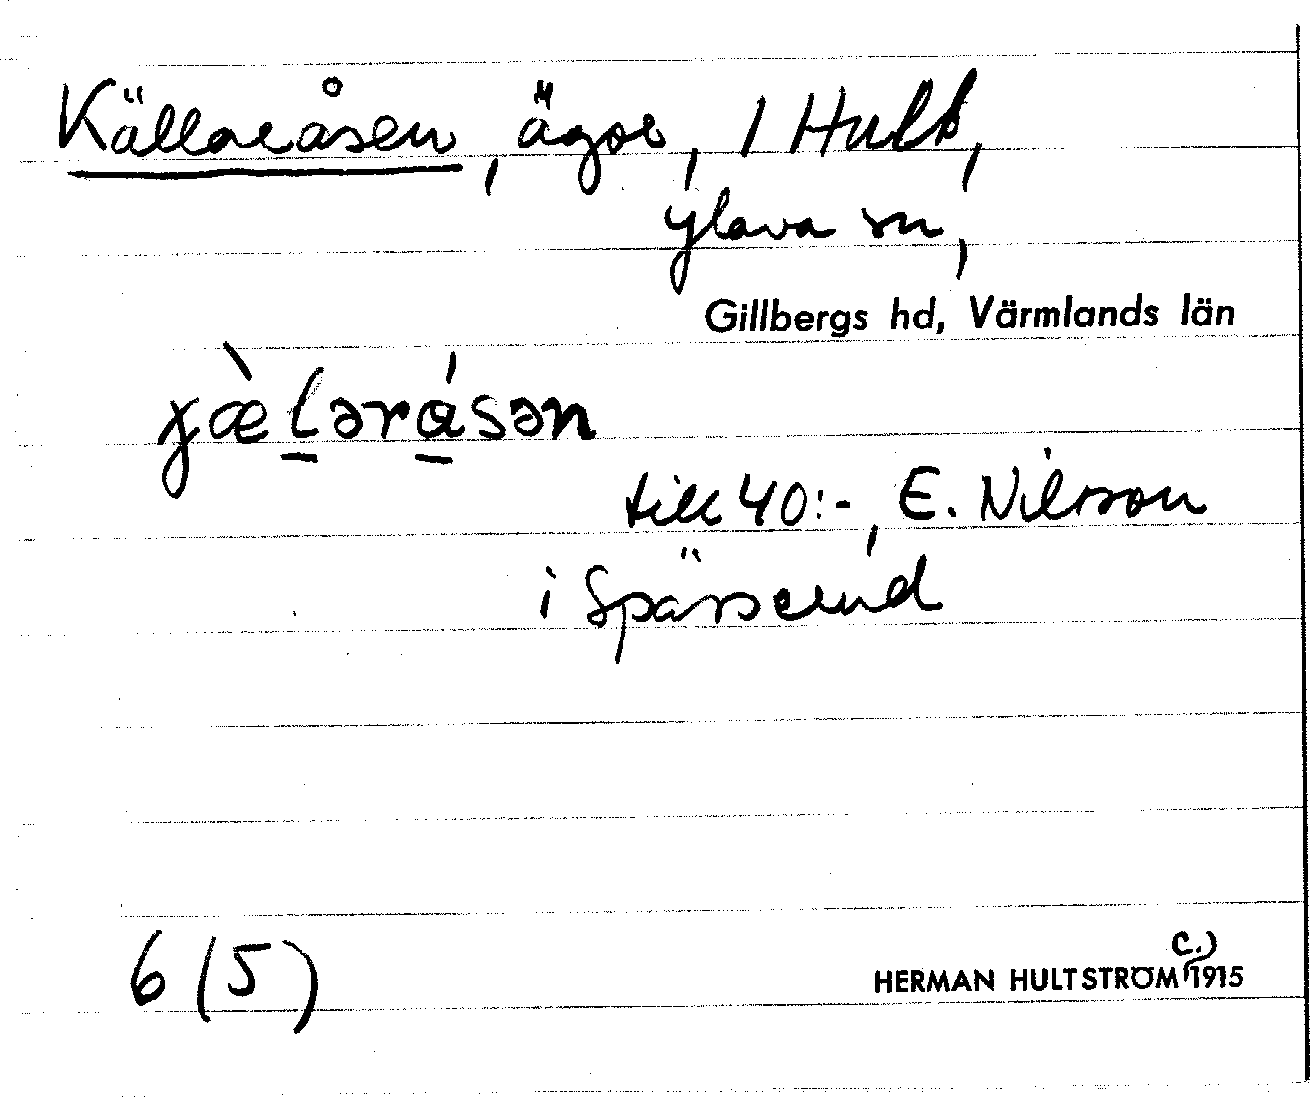 Källaråsen, ägor, 1 Hult,
Glava sn,
Gillbergs hd, Värmlands län
till 40:-, E. Nilsson
i Spässerud
6 (5)
HERMAN HULTSTRÖM (c.) 1915